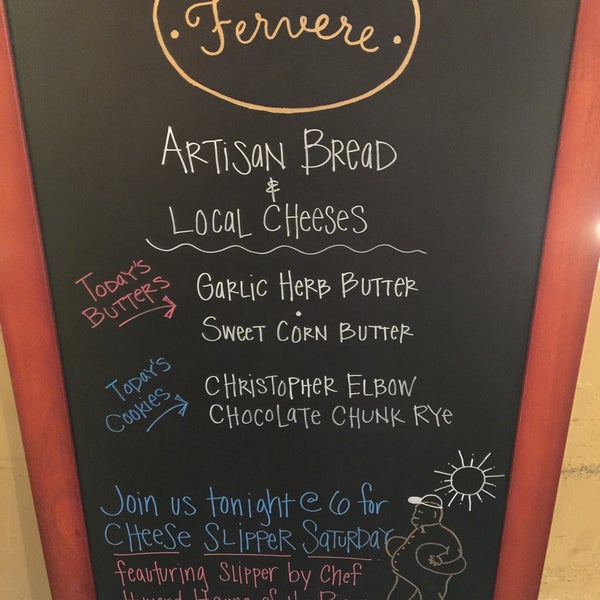 Fervere
ARTISAN BREAD
&
LOCAL CHEESES
TODAY'S
BUTTERS
GARLIC HERB BUTTER
•
SWEET CORN BUTTER
TODAY'S
COOKIES
CHRISTOPHER ELBOW
CHOCOLATE CHUNK RYE
Join us tonight @ 6 for
CHEESE SLIPPER SATURDAY
feauturing Slipper by Chef